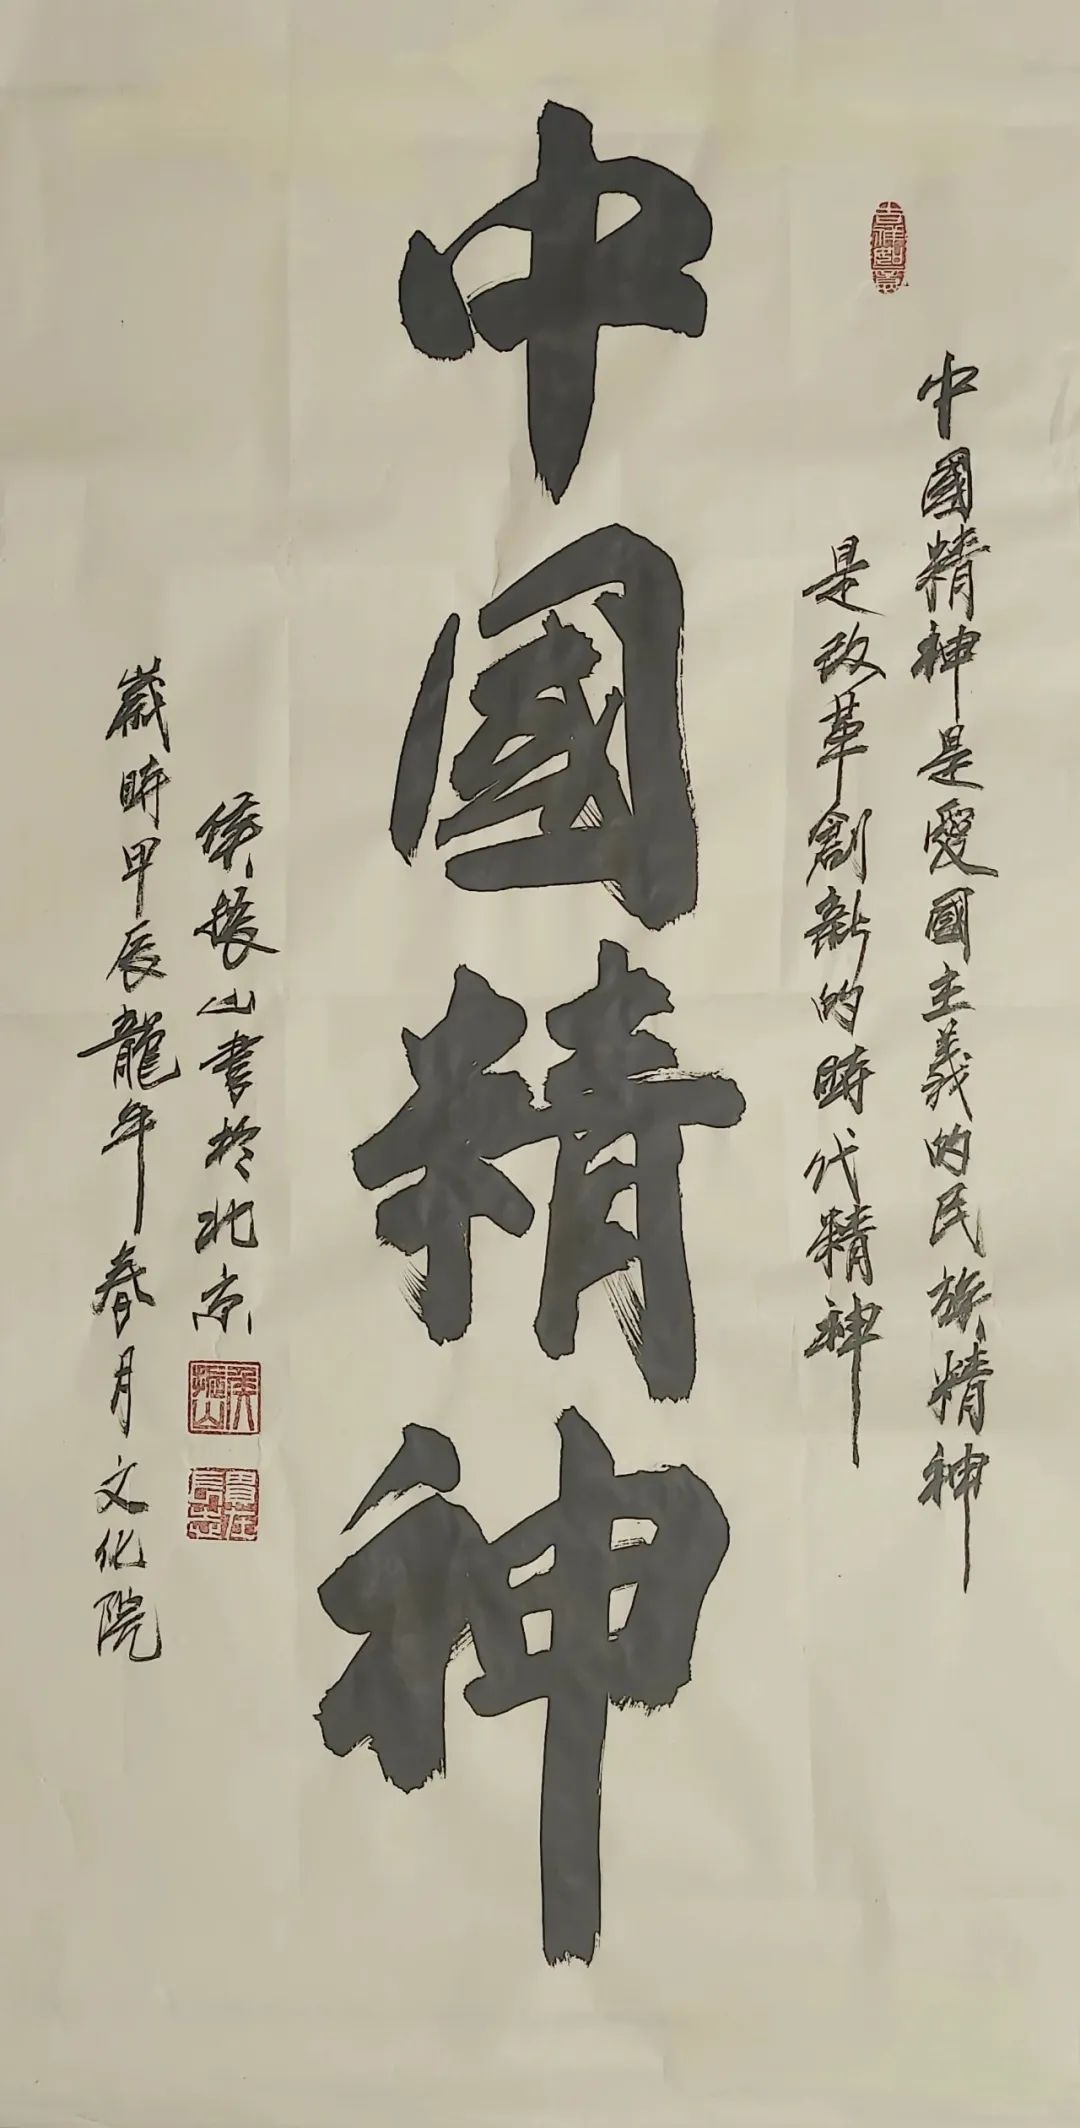 吉祥如意
中國精神是愛國主義的民族精神
是改革創新的時代精神
中國精神
侯振山書於北京
歲時甲辰龍年春月文化院
侯振山